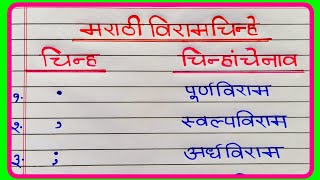 मराठी विरामचिन्हे
चिन्ह चिन्हांचेनाव
१. . पूर्णविराम
२. , स्वल्पविराम
३. ; अर्धविराम